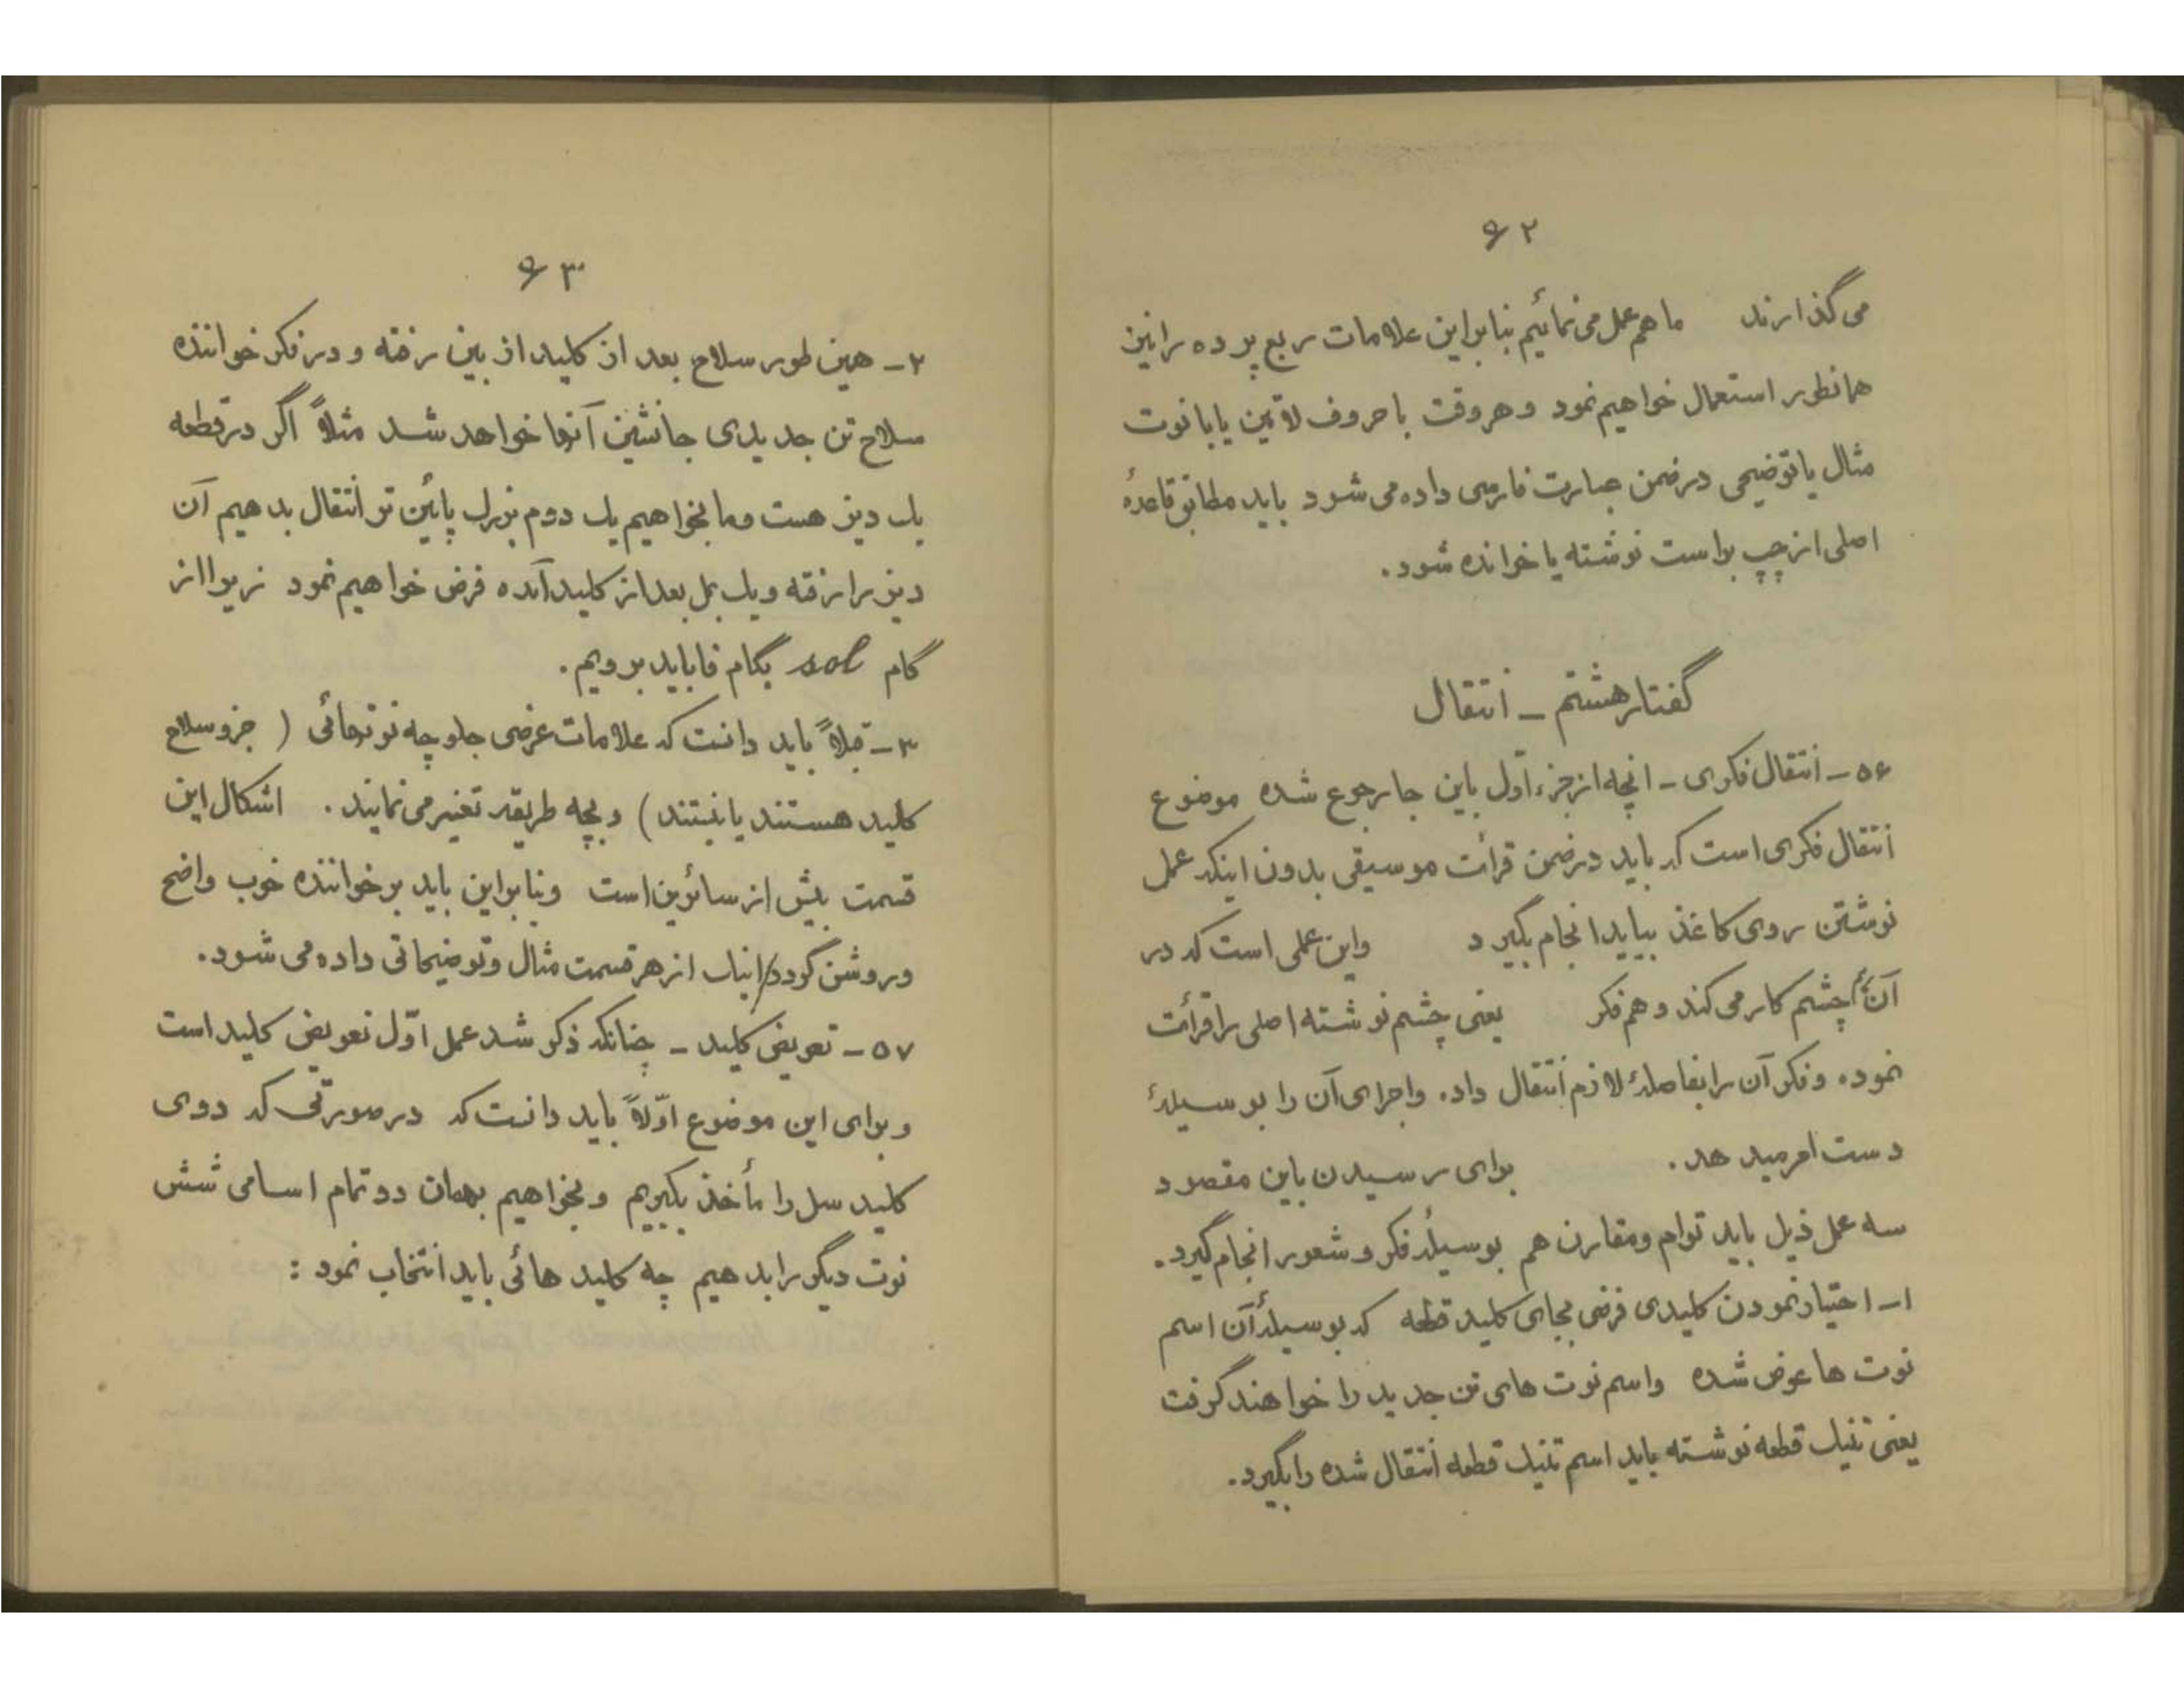 ۶۲
می گذارند ما هم عمل می نمائیم بنابراین علامات ربع پرده را نیز
همانطور استعمال خواهیم نمود و هر وقت با حروف لاتین یا با نوت
مثال یا توضیحی در ضمن عبارت فارسی داده می شود باید مطابق قاعدهٔ
اصلی از چپ براست نوشته یا خوانده شود.
گفتار هشتم ـ انتقال
۵۶ ـ انتقال فکری ـ آنچه از جزء اول باین جا رجوع شده موضوع
انتقال فکری است که باید در ضمن قرائت موسیقی بدون اینکه عمل
نوشتن روی کاغذ بیاید انجام بگیرد واین عملی است که در
آن هم چشم کار می کند و هم فکر یعنی چشم نوشته اصلی را قرائت
نموده و فکر آن را بفاصلهٔ لازم انتقال داده واجرای آن را بوسیلهٔ
دست امر میدهد. برای رسیدن باین مقصود
سه عمل ذیل باید توام ومقارن هم بوسیلهٔ فکر و شعور انجام گیرد.
۱ـ اختیار نمودن کلیدی فرضی بجای کلید قطعه که بوسیلهٔ آن اسم
نوت ها عوض شده واسم نوت های تن جدید را خواهند گرفت
یعنی تنیک قطعه نوشته باید اسم تنیک قطعه انتقال شده را بگیرد.
۶۳
۲ـ همین طور سلاح بعد از کلید از بین رفته و در فکر خواننده
سلاح تن جدیدی جانشین آنها خواهد شد مثلاً اگر در قطعه
یک دیز هست وما بخواهیم یک دوم بزرگ پائین تر انتقال بدهیم آن
دیز را رفته ویک بمل بعد از کلید آمده فرض خواهیم نمود زیرا از
گام sol بگام فا باید برویم.
۳ـ قبلاً باید دانست که علامات عرضی جلو چه نوتهائی ( جزو سلاح
کلید هستند یا نیستند) و بچه طریقه تغییر می نمایند. اشکال این
قسمت بیش از سائرین است وبنابراین باید بر خواننده خوب واضح
وروشن گردد/اینک از هر قسمت مثال وتوضیحاتی داده می شود.
۵۷ ـ تعویض کلید ـ چنانکه ذکر شد عمل اوّل تعویض کلید است
و برای این موضوع اوّلاً باید دانست که در صورتی که دوی
کلید سل را مأخذ بگیریم و بخواهیم بهمان دو تمام اسامی شش
نوت دیگر را بدهیم چه کلید هائی باید انتخاب نمود :